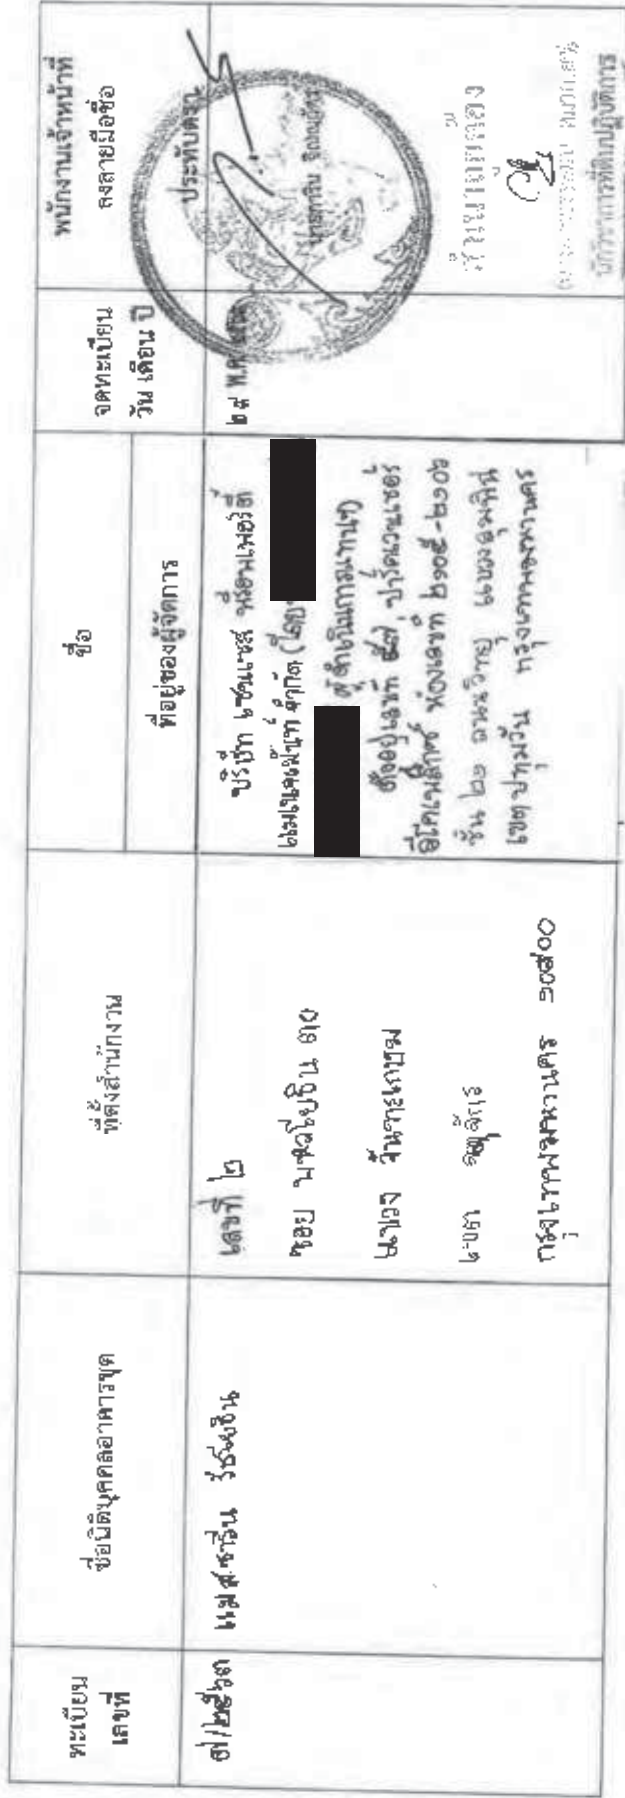 ทะเบียน
เลขที่
ชื่อนิติบุคคลอาคารชุด
ที่ตั้งสำนักงาน
ชื่อ
ที่อยู่ของผู้จัดการ
จดทะเบียน
วัน เดือน ปี
พนักงานเจ้าหน้าที่
ลงลายมือชื่อ
ประทับตรา
๗/๒๕๖๓
แมสซารีน รัชโยธิน
เลขที่ ๒
ซอย พหลโยธิน ๓๐
แขวง จันทรเกษม
เขต จตุจักร
กรุงเทพมหานคร ๑๐๙๐๐
บริษัท เซนเซส พร็อพเพอร์ตี้
แมเนจเม้นท์ จำกัด (โดย
ผู้ดำเนินการแทนฯ)
ตั้งอยู่เลขที่ ๕๗ ปาร์คเวนเชอร์
อีโคเพล็กซ์ ห้องเลขที่ ๒๑๐๕-๒๑๐๖
ชั้น ๒๑ ถนนวิทยุ แขวงลุมพินี
เขต ปทุมวัน กรุงเทพมหานคร
๒๙ พ.ค.
สำเนาถูกต้อง
นักวิชาการที่ดินปฏิบัติการ